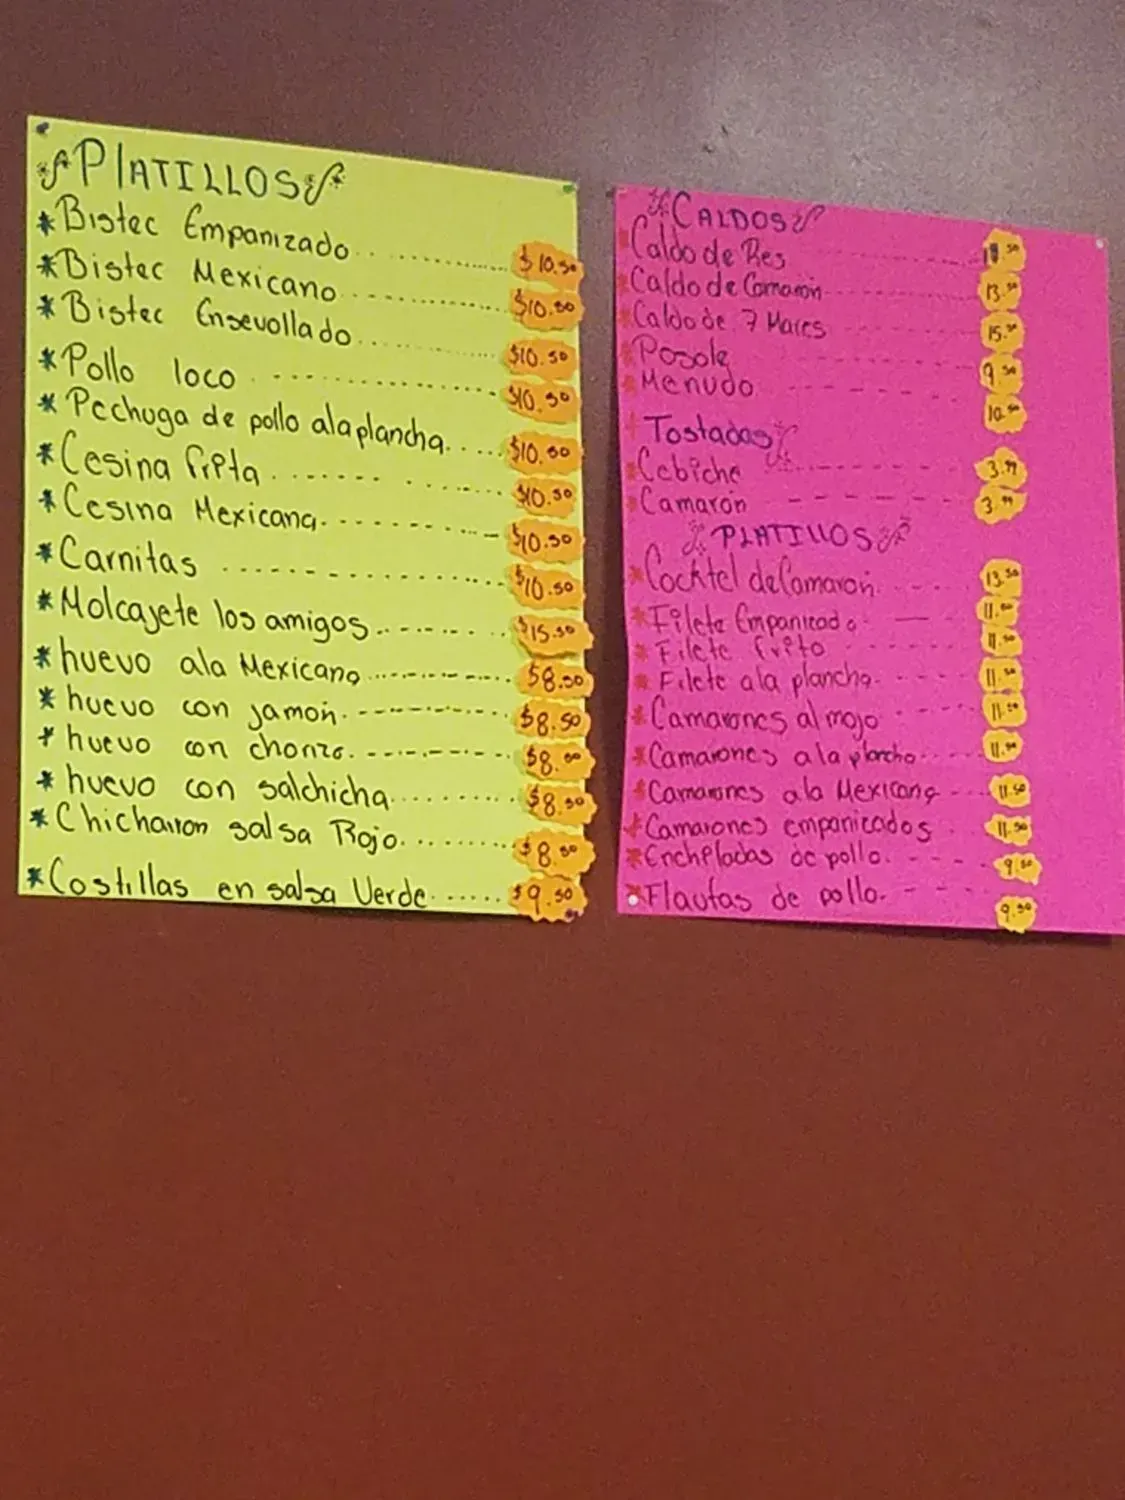 PLATILLOS
* Bistec Empanizado $10.50
* Bistec Mexicano $10.50
* Bistec Ensevollado $10.50
* Pollo loco $10.50
* Pechuga de pollo ala plancha $10.50
* Cesina frita $10.50
* Cesina Mexicana $10.50
* Carnitas $10.50
* Molcajete los amigos $15.50
* huevo ala Mexicana $8.50
* huevo con jamon $8.50
* huevo con chorizo $8.50
* huevo con salchicha $8.50
* Chicharron salsa Rojo $8.50
* Costillas en salsa Verde $9.50
CALDOS
* Caldo de Res
* Caldo de Camaron 13.50
* Caldo de 7 Mares 15.50
* Posole 9.50
* Menudo 10.50
Tostadas
* Cebiche 3.99
* Camarón 3.99
PLATILLOS
* Cocktel de Camaron 13.50
* Filete Empanizado 11.50
* Filete frito 11.50
* Filete a la plancha 11.50
* Camarones al mojo 11.50
* Camarones a la plancha 11.50
* Camarones ala Mexicana 11.50
* Camarones empanizados 11.50
* Enchiladas de pollo 9.50
* Flautas de pollo 9.50